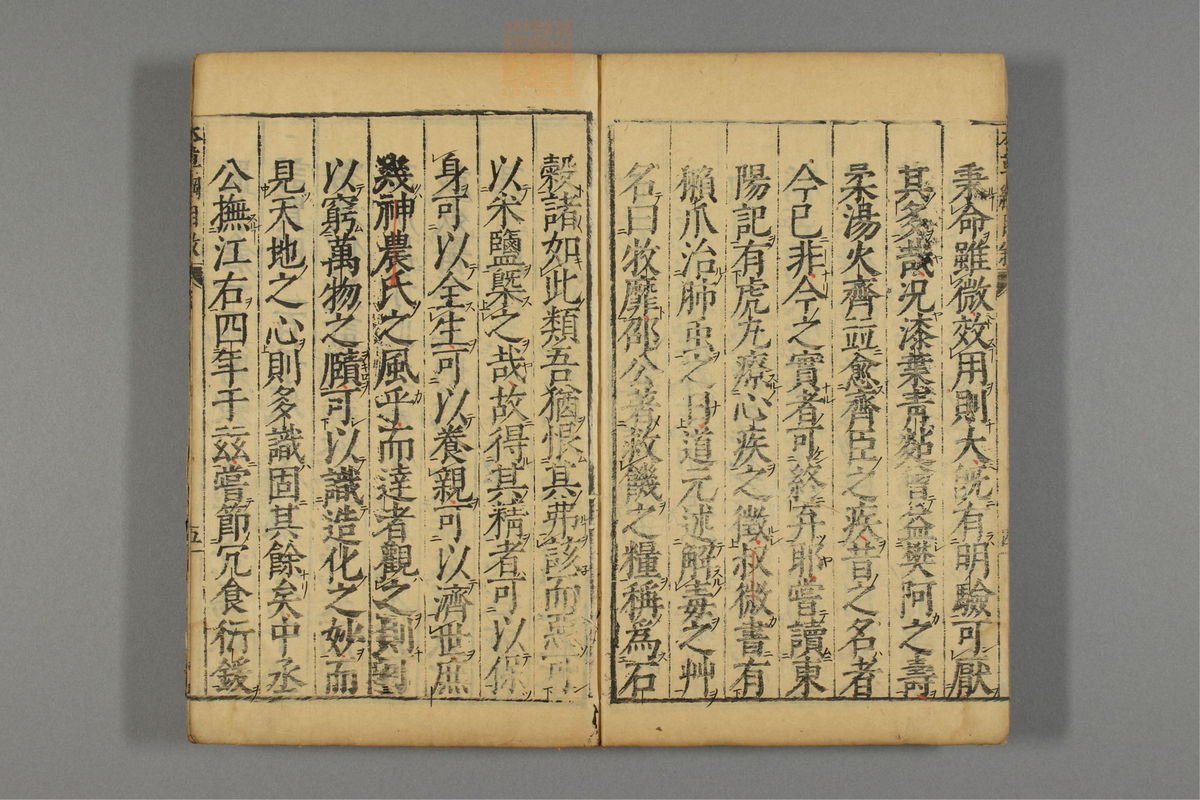 秉命雖微效用則大旣有明驗可厭
其多哉況漆葉青黏嘗益樊阿之壽
柔湯火齊並愈齊臣之疾昔之名者
今已非今之實者可終弃耶嘗讀東
陽記有虎尤療心疾之徵叔微書有
獺爪治肺虫之日道元述解毒之艸
名曰牧靡邵公著救饑之糧稱為石
穀諸如此類吾猶恨其弗該而惡可
以米鹽槩之哉故得其精者可以保
身可以全生可以養親可以濟世庶
幾神農氏之風乎而達者觀之則
以窮萬物之賾可以識造化之妙而
見天地之心則多識固其餘矣中丞
公撫江右四年于茲嘗節冗食衍鍰